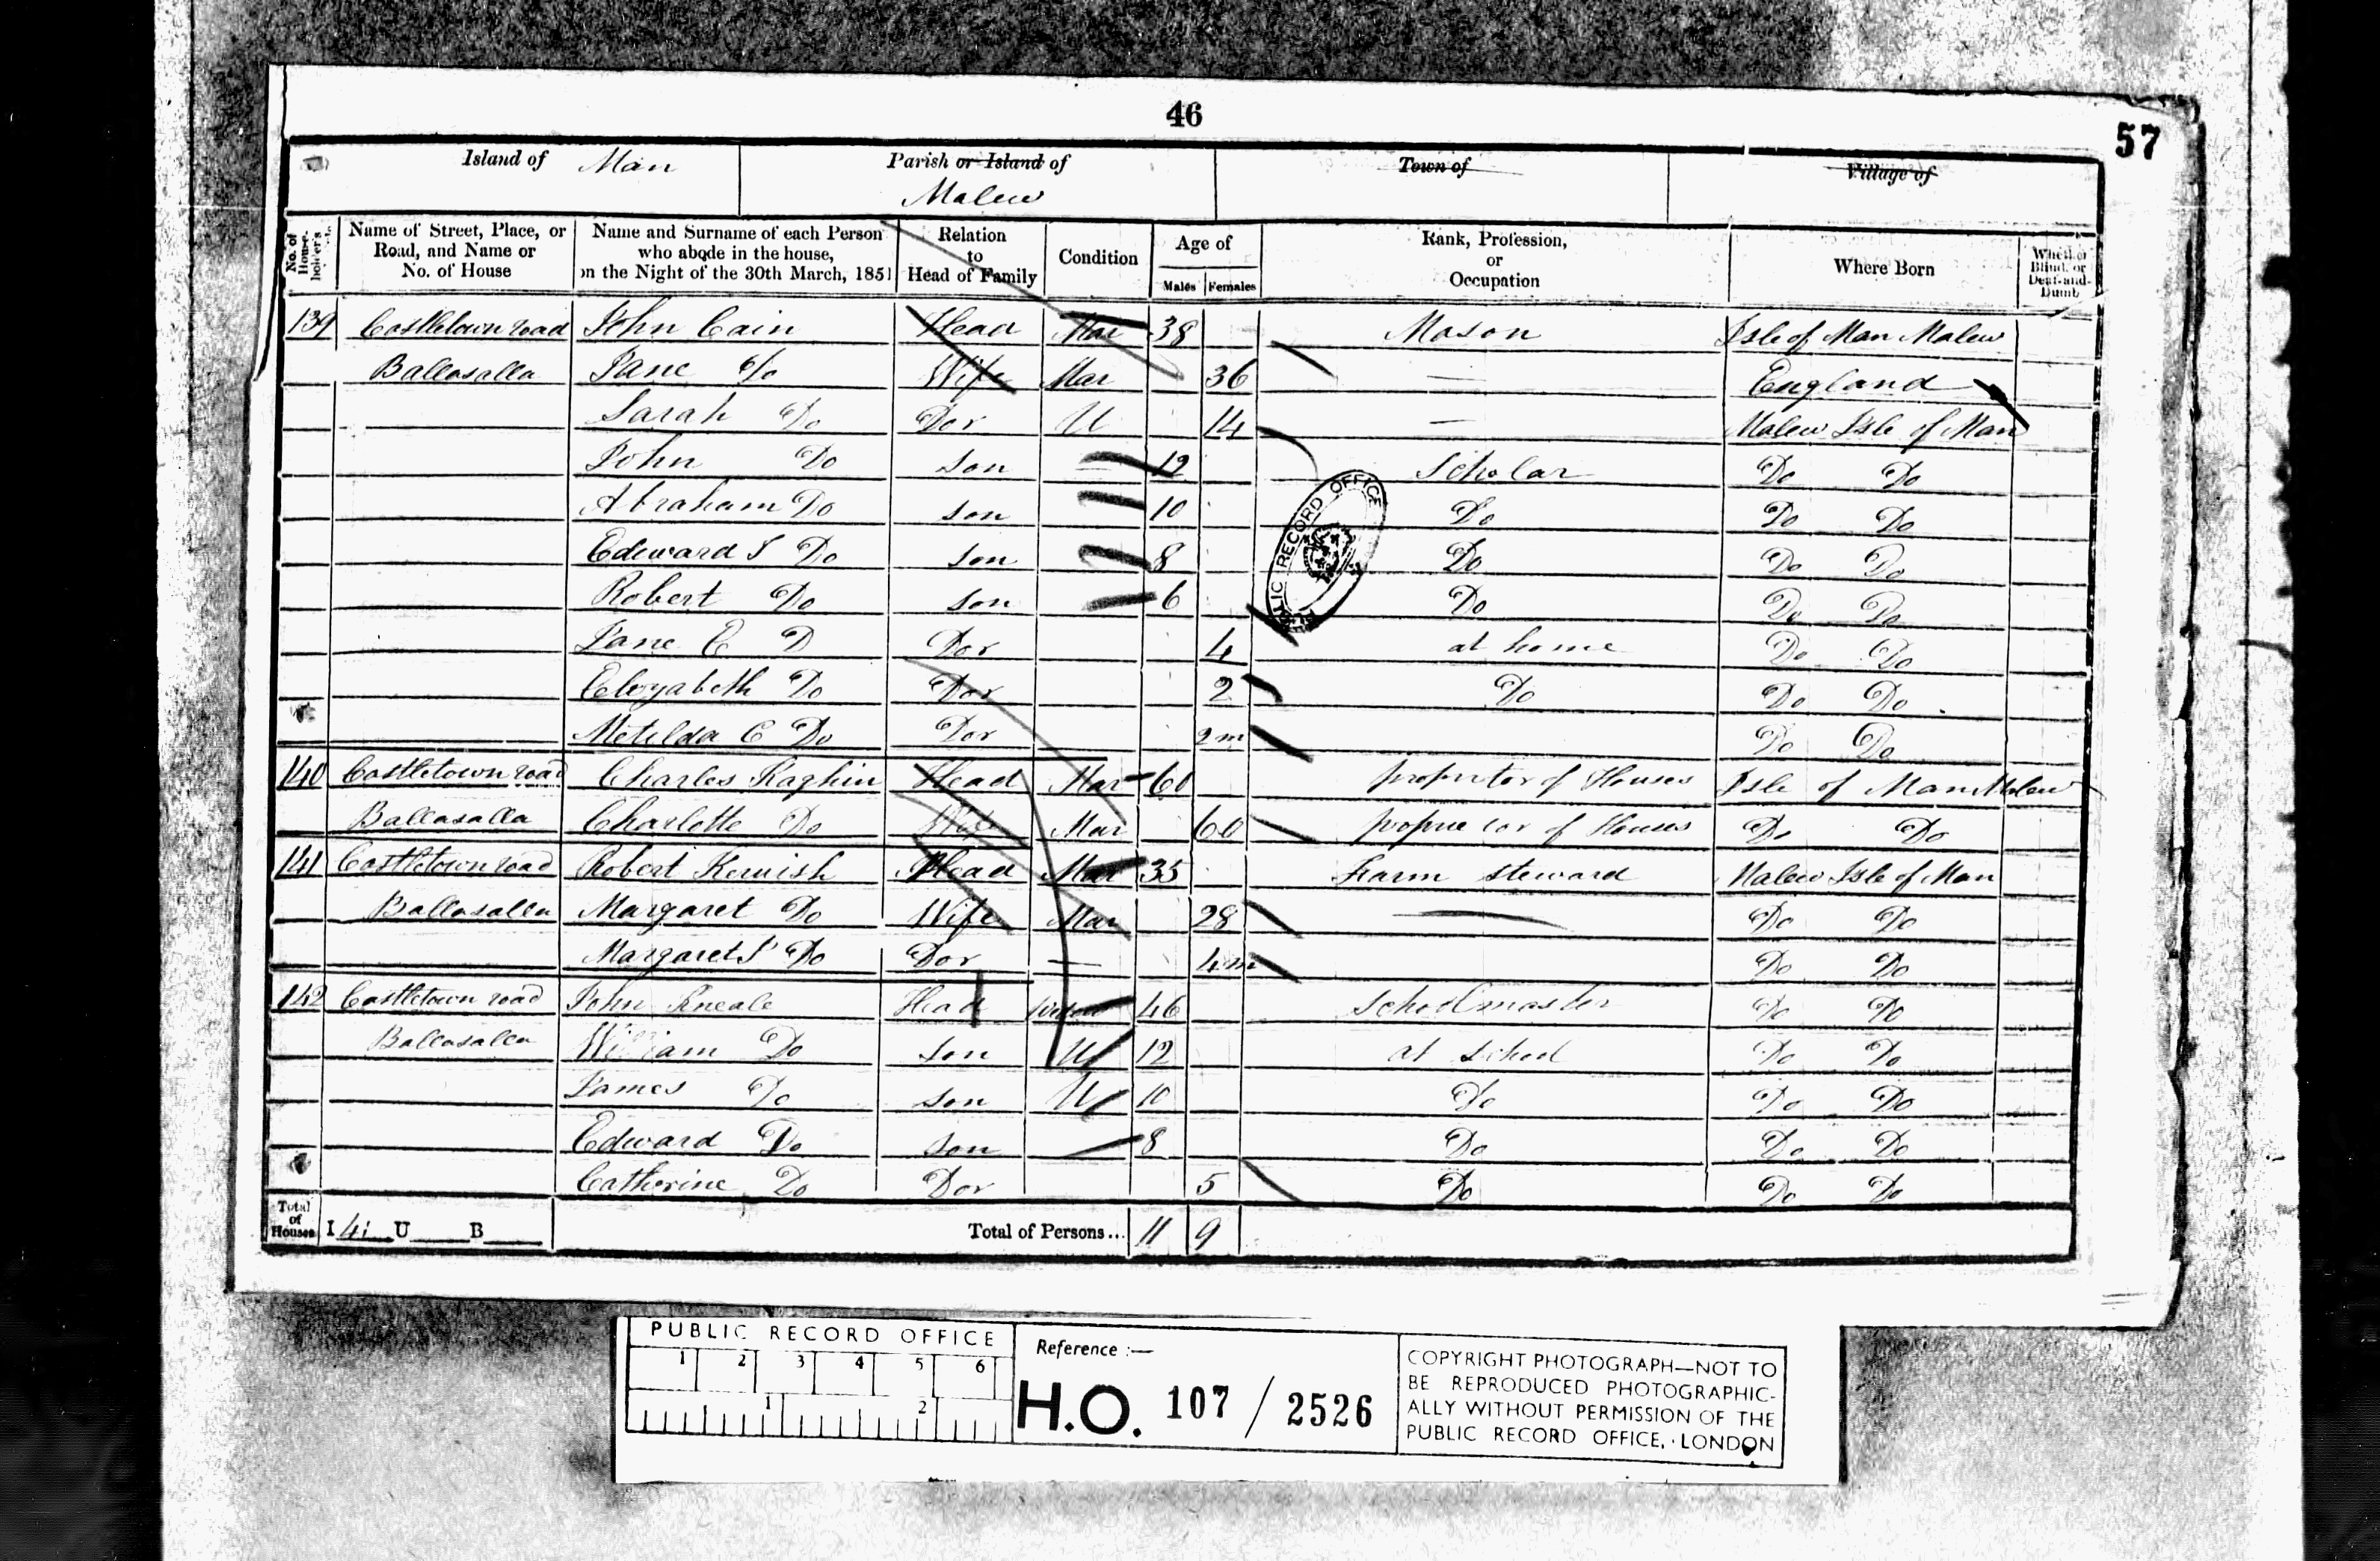 46
57
Island of Man Parish or Island of Malew Town of Village of
No. of House-holder's Name of Street, Place, or Road, and Name or No. of House Name and Surname of each Person who abode in the house, on the Night of the 30th March, 1851 Relation to Head of Family Condition Age of Males Females Rank, Profession, or Occupation Where Born Whether Blind, or Deaf-and-Dumb
139 Castletown road John Cain Head Mar 38 Mason Isle of Man Malew
Ballasalla Jane Do Wife Mar 36 — England
Sarah Do Dor U 14 — Malew Isle of Man
John Do son — 12 Scholar Do Do
Abraham Do son 10 Do Do Do
Edward S Do son 8 Do Do Do
Robert Do son 6 Do Do Do
Jane E D Dor 4 at home Do Do
Elizabeth Do Dor 2 Do Do Do
Metilda C Do Dor 2m Do Do
140 Castletown road Charles Kaghin Head Mar 60 proprietor of Houses Isle of Man Malew
Ballasalla Charlotte Do Wife Mar 60 proprietor of Houses Do Do
141 Castletown road Robert Kewish Head Mar 35 Farm steward Malew Isle of Man
Ballasalla Margaret Do Wife Mar 28 — Do Do
Margaret S Do Dor — 4m Do Do
142 Castletown road John Kneale Head 46 Schoolmaster Do Do
Ballasalla William Do son U 12 at School Do Do
James Do son U 10 Do Do Do
Edward Do son 8 Do Do Do
Catherine Do Dor 5 Do Do Do
Total of Houses I 4 U B Total of Persons... 11 9
PUBLIC RECORD OFFICE
PUBLIC RECORD OFFICE
1 2 3 4 5 6
1 2
Reference :—
H.O. 107 / 2526
COPYRIGHT PHOTOGRAPH—NOT TO
BE REPRODUCED PHOTOGRAPHIC-
ALLY WITHOUT PERMISSION OF THE
PUBLIC RECORD OFFICE, LONDON